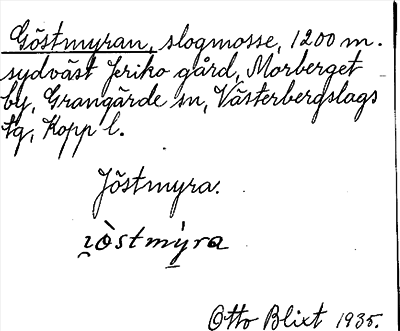 Göstmyran, slogmosse, 1200 m.
sydväst Jeriko gård, Morberget
by, Grangärde sn, Västerbergslags
tg, Kopp l.
Jöstmyra.
Otto Blixt 1935.